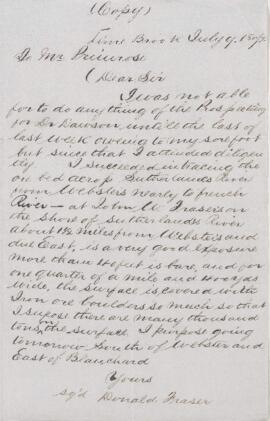 (Copy)
Lime Brook July 9. 1872
To Mr Primrose
(Dear Sir
I was not able
for to do anything of the Prospecting
for Dr Dawson, untill the last of
last week owing to my sore foot
but since that I attended diligen
tly. I succeed in tracing the
ore bed across Sutherlands River
from Websters nearly to french
River – at John W. Frasers on
the shore of Sutherlands River
about 1½ miles from Websters and
due East, is a very good exposure
more than 40 feet is bare, and for
one quarter of a mile and 200 yds
wide, the surface is covered with
Iron ore boulders so much so that
I supose there are many thousand
tons, on the surface. I purpose going
tomorrow South of Webster and
East of Blanchard
Yours
sg'd Donald Fraser